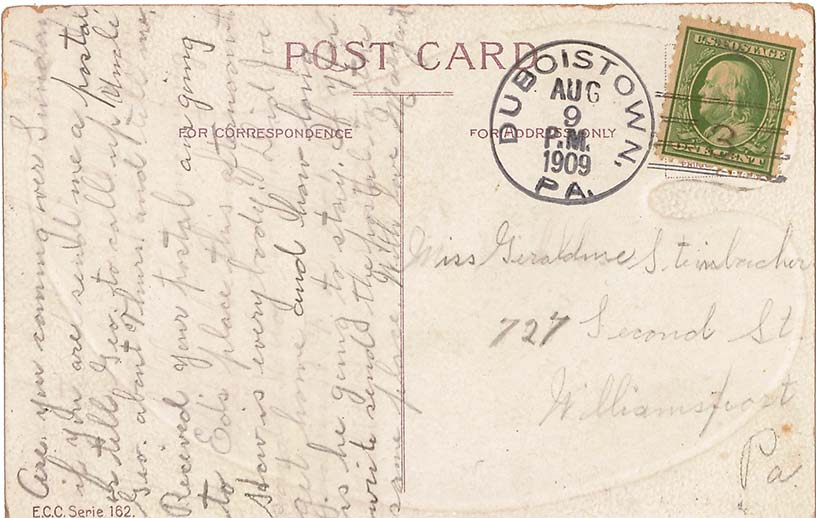 POST CARD
FOR CORRESPONDENCE
FOR ADDRESS ONLY
DUBOISTOWN, PA.
AUG
9
P.M.
1909
U.S. POSTAGE
ONE CENT
Miss Geraldine Steinbacher
727 Second St.
Williamsport
Pa
Are you coming over Sunday
if you are send me a postal
or tell Geo. to call up Uncle
Geo. about Thurs. and tell me,
Recieved your postal am going
to Ed's place this afternoon
How is everybody? Did Joe
get home and how long
is he going to stay. If you
write send the postal to the
same place With love Margaret
E.C.C. Serie 162.